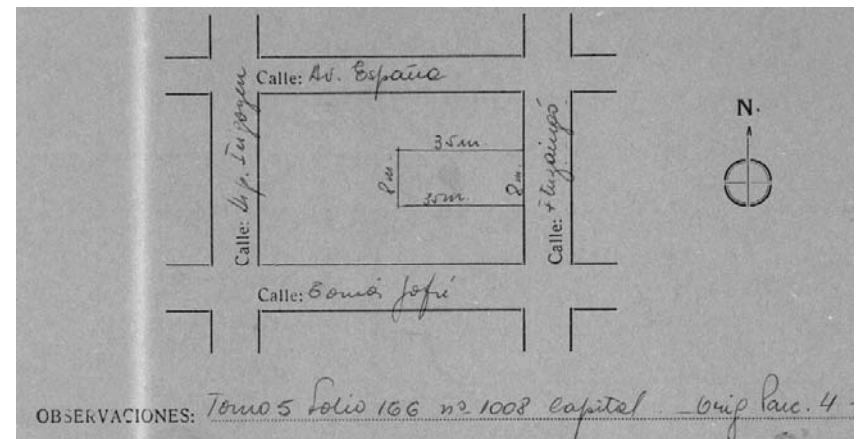 Calle: Av. España
N.
Calle: Hip. Irigoyen
35m
8m.
8m.
35m.
Calle: Ituzaingó
Calle: Tomás Jofré
OBSERVACIONES: Tomo 5 Folio 166 nº 1008 Capital _ Orig Parc. 4 -